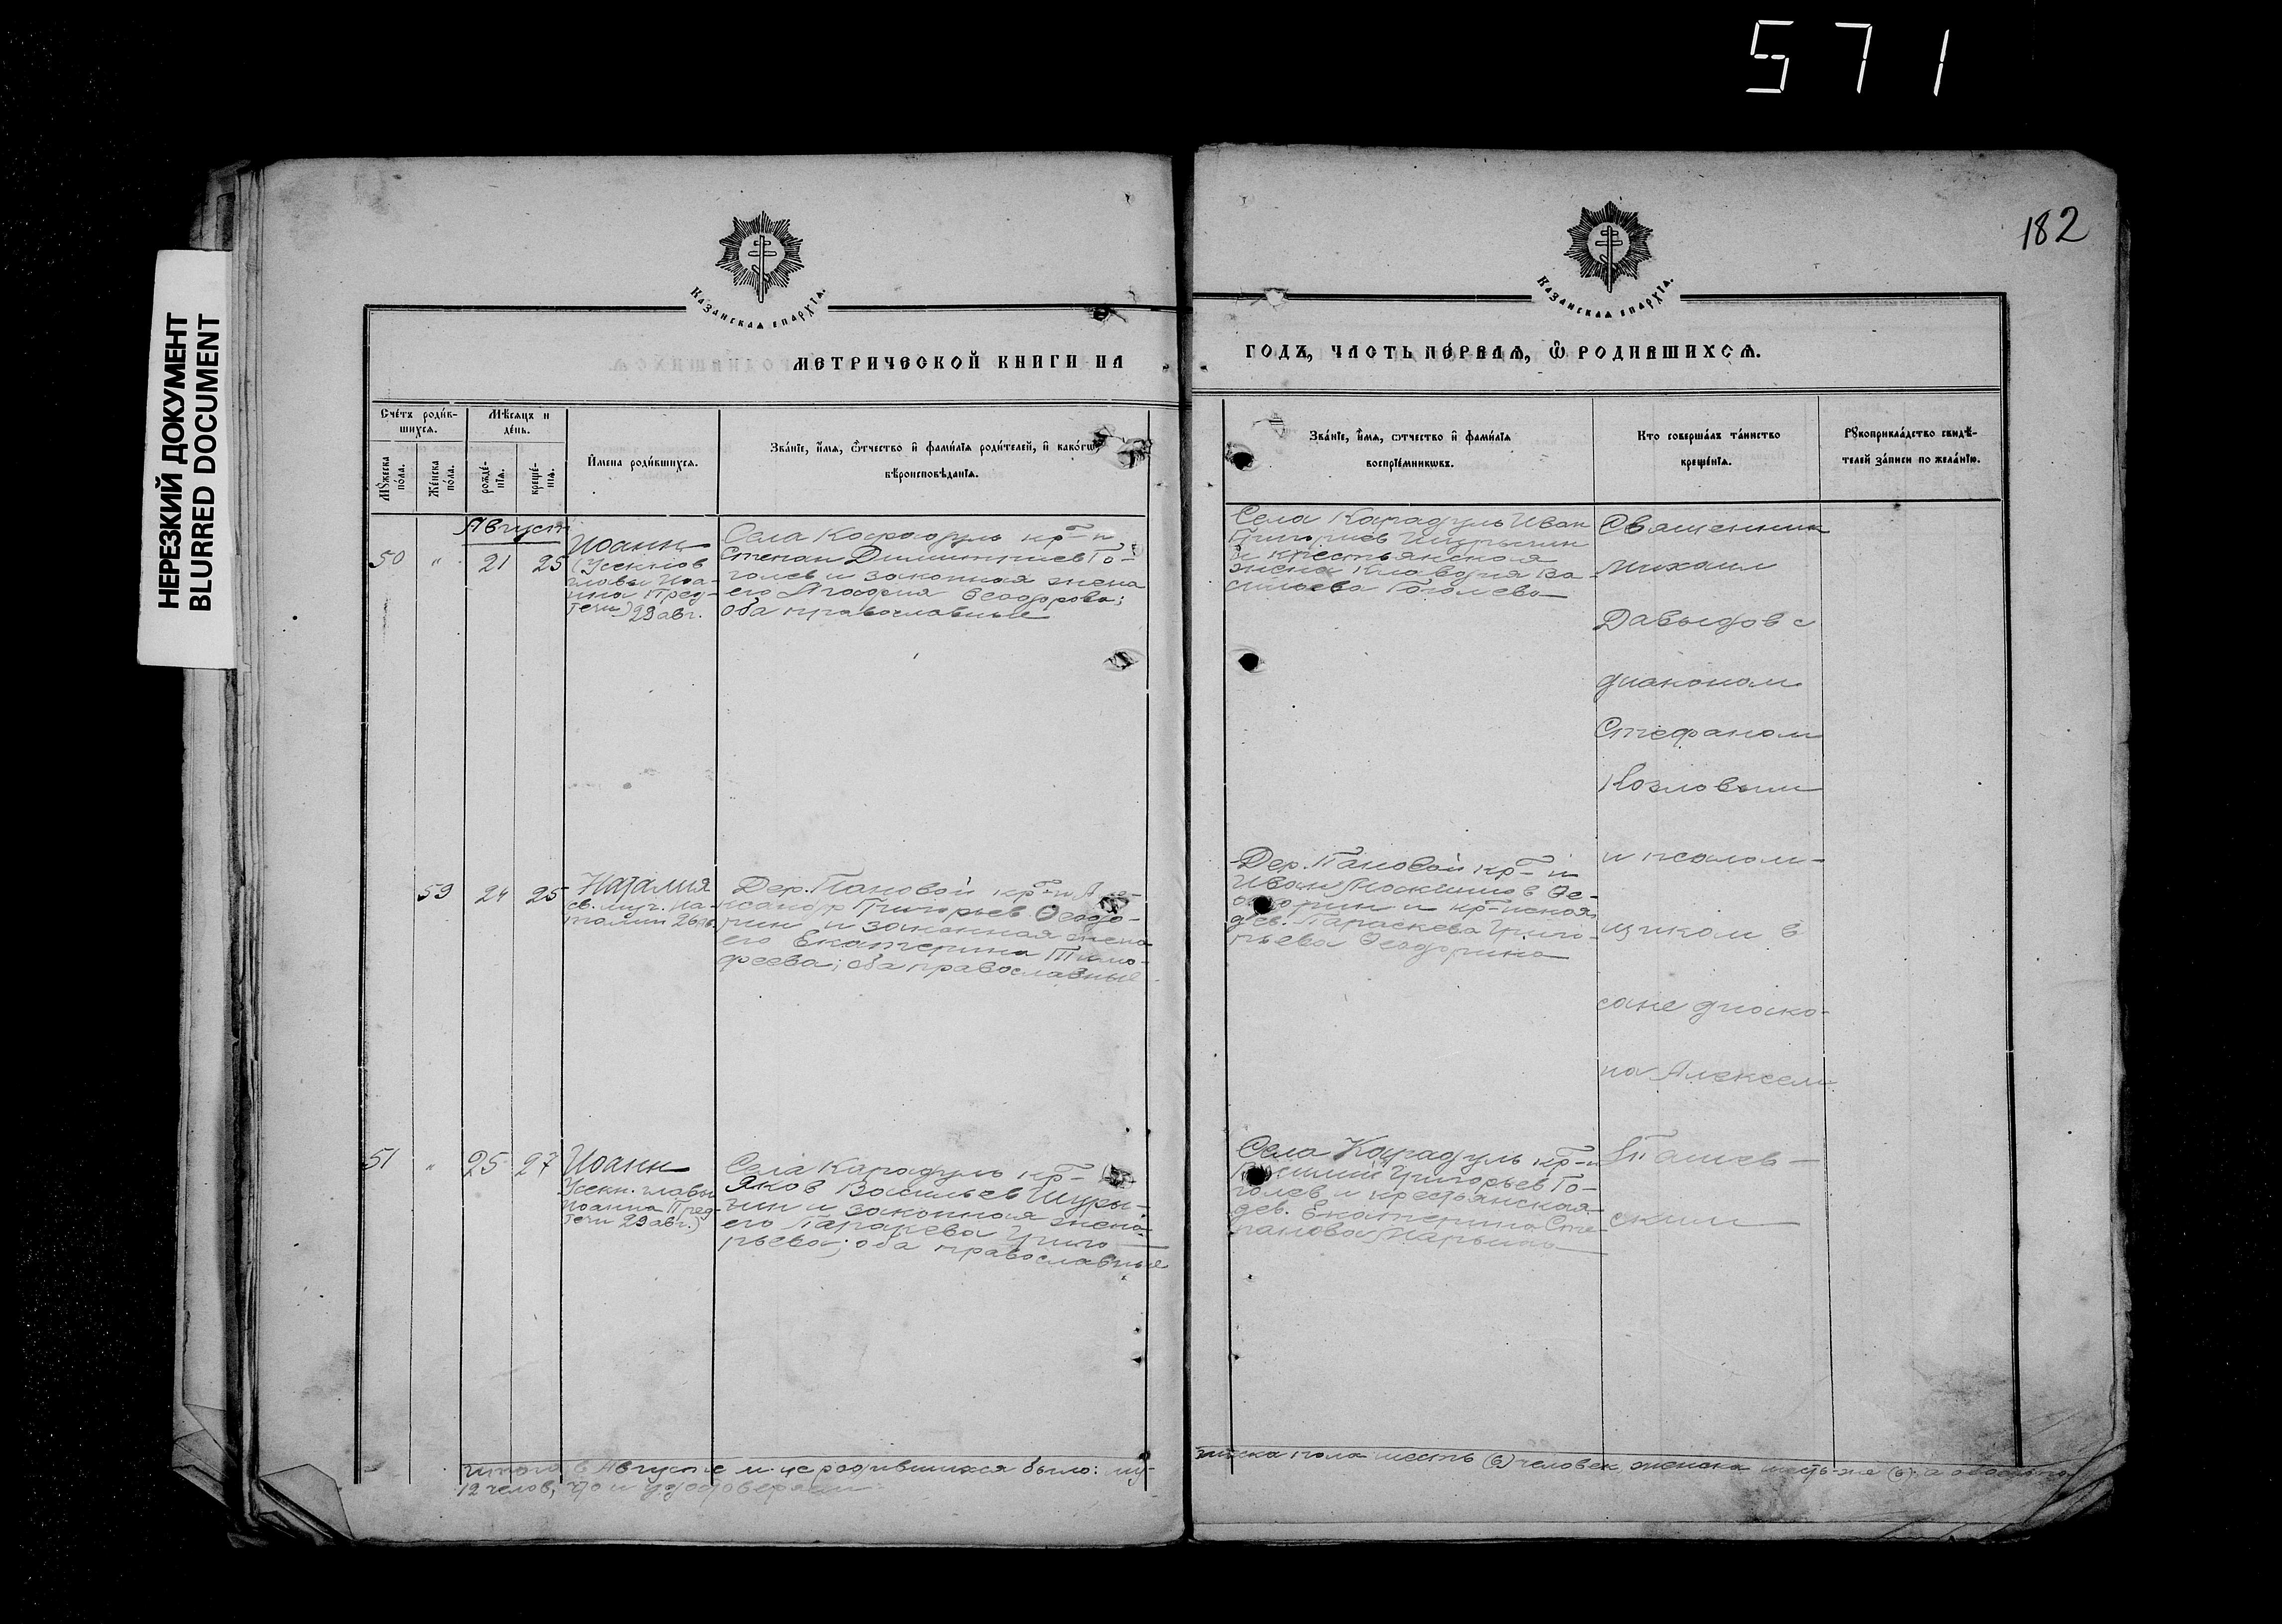 571
НЕРЕЗКИЙ ДОКУМЕНТ
BLURRED DOCUMENT
182
Казанская епархїѧ.
Казанская епархїѧ.
МЕТРИЧЕСКОЙ КНИГИ НА
ГОДЪ, ЧАСТЬ ПЕРВАЯ, Ѿ РОДИВШИХСЯ.
Счетъ родив-
шихся.
Мужеска
пола.
Женска
пола.
Мѣсяцъ и
день.
рожде-
нїя.
креще-
нїя.
Имена родившихся.
Званїе, имя, отчество и фамилїя родителей, и какогѡ
вѣроисповѣданїя.
Званїе, имя, отчество и фамилїя
воспрїемникѡвъ.
Кто совершалъ таинство
крещенїя.
Рукоприкладство свидѣ-
телей записи по желанїю.
Август
50 " 21 25
Иоанн
(Усекнов
главы Иоа-
нна Пред-
течи) 29 авг.
Села Карадуль кр-н
Степан Димитриев Го-
голев и законная жена
его Агафия Феодорова;
оба православные
Села Карадуль Иван
Григориев Шурыгин
и крестьянская
жена Клавдия Ва-
сильева Гоголева
Священник
Михаил
Давыдов с
диаконом
Стефаном
Козловым
и псалом-
щиком в
сане диако-
на Алексеем
59 24 25
Наталия
св. муч. На-
талии 26 ав.
Дер. Пановой кр-н Але-
ксандр Григорьев Феодо-
рин и законная жена
его Екатерина Тимо-
феева; оба православные
Дер. Пановой кр-н
Иван Максимов Фе-
одорин и кр-нская
дев. Параскева Григо-
рьева Феодорина
51 " 25 27
Иоанн
Усекн. главы
Иоанна Пред-
течи 29 авг.)
Села Карадуль кр-н
Яков Васильев Шуры-
гин и законная жена
его Параскева Григо-
рьева; оба православные
Села Карадуль кр-н
Григорьев Го-
голев и крестьянская
дев. Екатерина Сте-
панова
ским
Итого в Августе м-це родившихся было: му-
жеска пола шесть (6) человек, женска шесть же (6), а обоего
12 челов, что и удостоверяем: